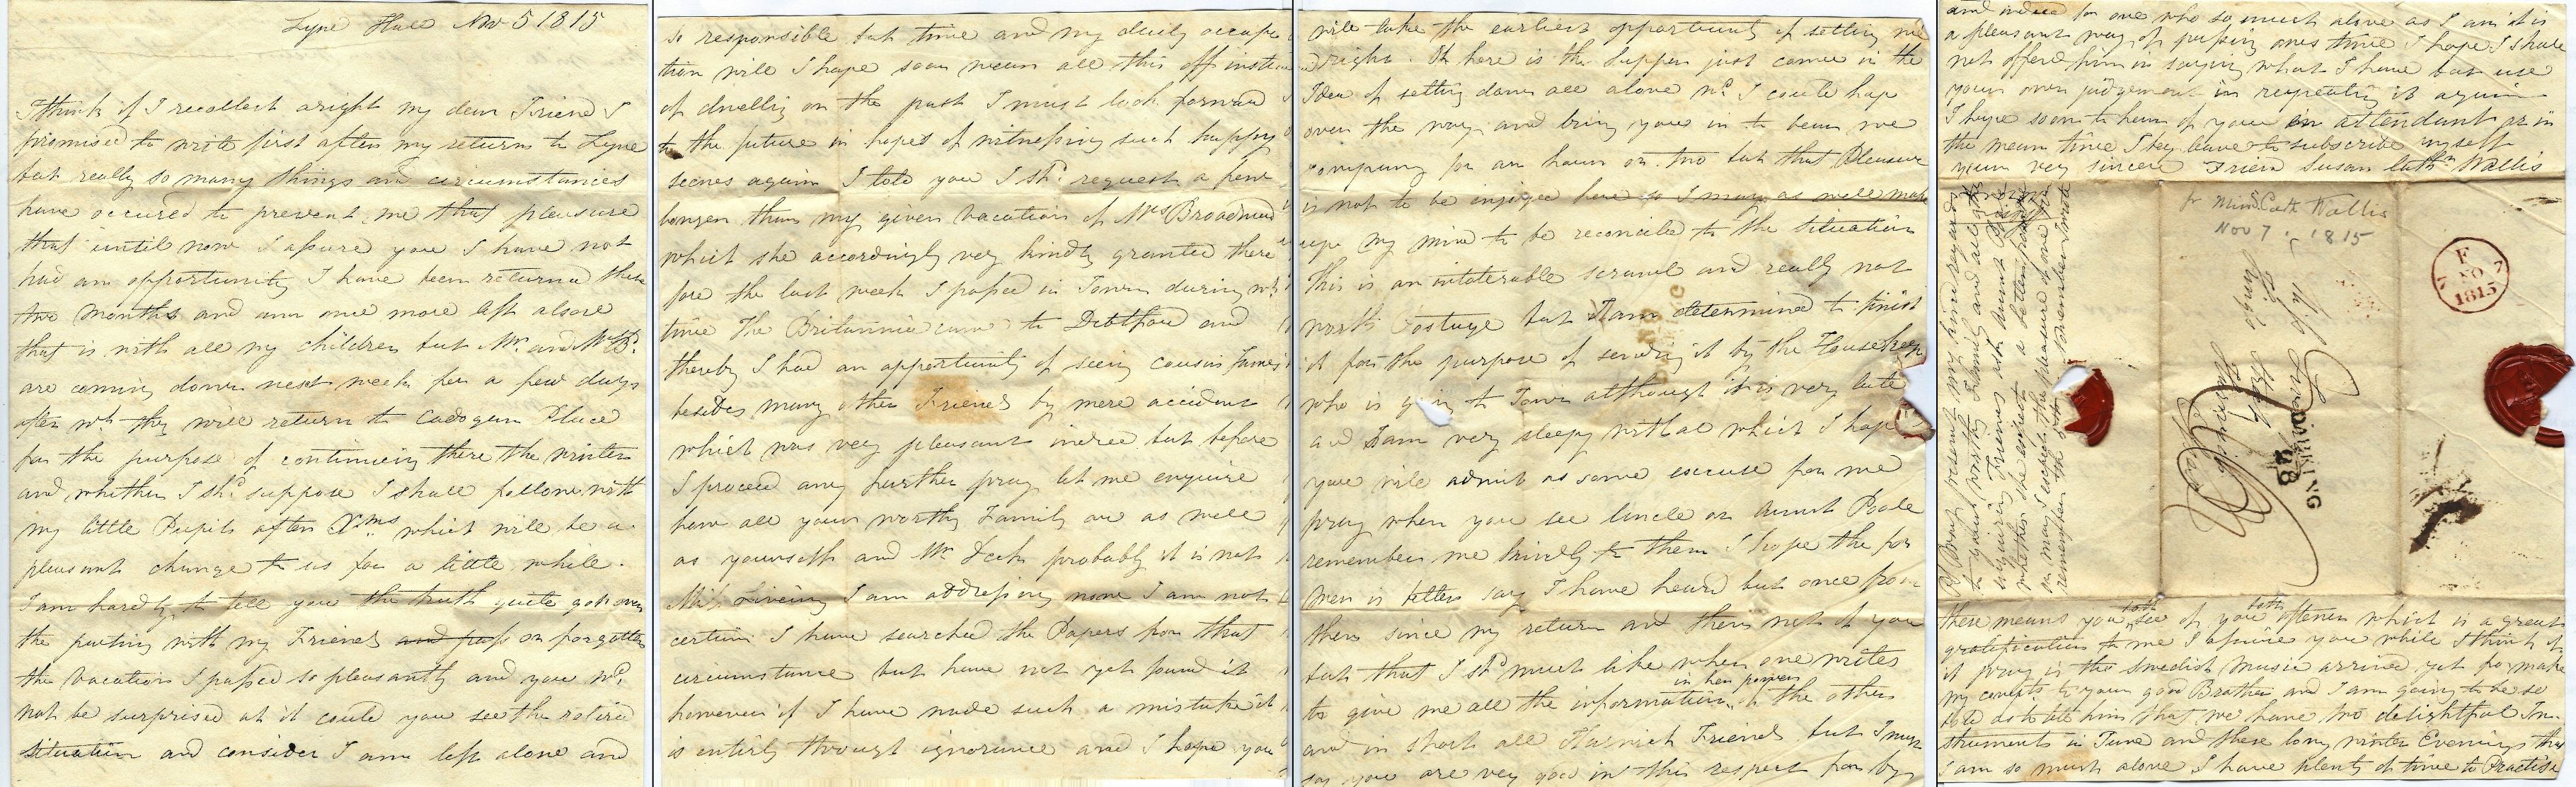 Lyne Hall Nov 5 1815
I think if I recollect aright my dear Friend I
promised to write first after my return to Lyne
but really so many things and circumstances
have occured to prevent me that pleasure
that until now I assure you I have not
had an opportunity I have been returned these
two months and am once more left alone
that is with all my children but Mr. and Mrs B.
are coming down next week for a few days
after wh. they will return to Cadogan Place
for the purpose of continuing there the winter
and whether I shd. suppose I shall follow with
my little Pupils after Xmas which will be a
pleasant change to us for a little while.
I am hardly to tell you the truth quite got over
the parting with my Friends and pass on forgotten
the vacation I passed so pleasantly and you wd.
not be surprised at it could you see the retired
situation and consider I am left alone and
so responsible but time and my daily occupa
tion will I hope soon wean all this off instead
of dwelling on the past I must look forward
to the future in hopes of witnessing such happy
scenes again I told you I shd. request a few
longer than my given vacation of Mrs Broadwood
which she accordingly very kindly granted there
fore the last week I passed in Town during wh.
time The Britannia came to Debtford and
thereby I had an opportunity of seeing cousin James
besides many other Friends by mere accident
which was very pleasant indeed but before
I proceed any further pray let me enquire
how all your worthy Family are as well
as yourself and Mr probably it is not
Miss I am addressing now I am not
certain I have searched the Papers for that
circumstance but have not yet found it
however if I have made such a mistake it
is entirely through ignorance and I hope you
will take the earliest opportunity of setting me
right. Oh here is the Supper just come in the
Idea of setting down all alone wd. I could hop
over the way and bring you in to bear me
company for an hour or two but that Pleasure
is not to be enjoyed here so I may as well make
upe my mind to be reconciled to the situation
this is an intolerable scrawl and really not
worth Postage but I am determined to finish
it for the purpose of sending it by the Housekeep
who is going to Town although it is very late
and I am very sleepy withal which I hope
you will admit as some excuse for me
pray when you see Uncle or Aunt Poole
remember me kindly to them I hope the for
mer is better say I have heard but once from
them since my return and then not of you
but that I shd much like when one writes
to give me all the information in her power to the other
and in short all Harwich Friends but I must
say you are very good in this respect for by
these means you both see of you both oftener which is a great
gratification to me I assure you while I think of
it pray is the Swedish Music arrived yet for make
my compts to your good Brother and I am going to be so
bold as to tell him that we have two delightful In-
struments in Tune and these long winter Evenings that
I am so much alone I have plenty of time to Practise
and indeed for one who so much alone as I am it is
a pleasant way of passing ones time I hope I shall
not offend him in saying what I have but use
your own judgement in repeating it again
I hope soon to hear of you in attendant or in
the mean time I beg leave to subscribe myself
your very sincere Friend Susan Cathn Wallis
PS Pray present my kind regards
to your worthy Family and all
enquiring Friends with Aunt
whether she expects a letter from me
or may I expect the pleasure of one
remember
fr Miss S. Cath Wallis
Nov 7. 1815
Miss
Harwich
Essex
F
7 NO 7
1815
DORKING